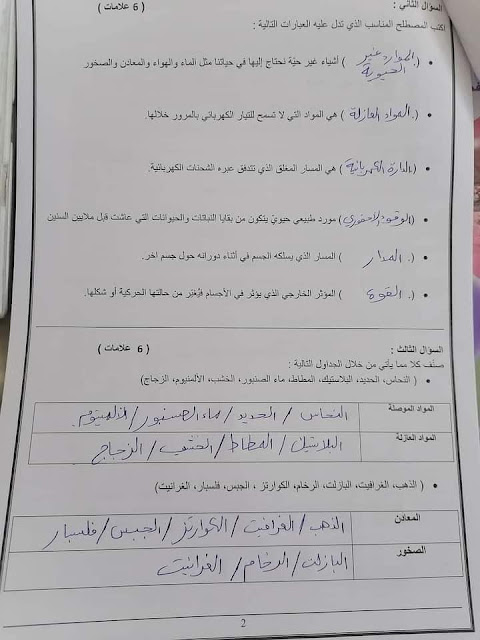 السؤال الثاني : ( 6 علامات )
اكتب المصطلح المناسب الذي تدل عليه العبارات التالية :
• (. الموارد غير الحيوية ) أشياء غير حيّة نحتاج إليها في حياتنا مثل الماء والهواء والمعادن والصخور
• (. المواد العازلة ) هي المواد التي لا تسمح للتيار الكهربائي بالمرور خلالها.
• (الدارة الكهربائية) هي المسار المغلق الذي تتدفق عبره الشحنات الكهربائية.
• (الوقود الاحفوري) مورد طبيعي حيويّ يتكون من بقايا النباتات والحيوانات التي عاشت قبل ملايين السنين
• (. المدار ) المسار الذي يسلكه الجسم في أثناء دورانه حول جسم اخر.
• (. القوة ) المؤثر الخارجي الذي يؤثر في الأجسام فيُغيّر من حالتها الحركية أو شكلها.
السؤال الثالث : ( 6 علامات )
صنف كلا مما يأتي من خلال الجداول التالية :
• ( النحاس، الحديد، البلاستيك، المطاط، ماء الصنبور، الخشب، الألمنيوم، الزجاج)
المواد الموصلة النحاس / الحديد / ماء الصنبور / الألمنيوم.
المواد العازلة البلاستيك / المطاط / الخشب / الزجاج
• ( الذهب، الغرافيت، البازلت، الرخام، الكوارتز ، الجبس، فلسبار، الغرانيت)
المعادن الذهب / الغرافيت / الكوارتز / الجبس / فلسبار
الصخور البازلت / الرخام / الغرانيت
2